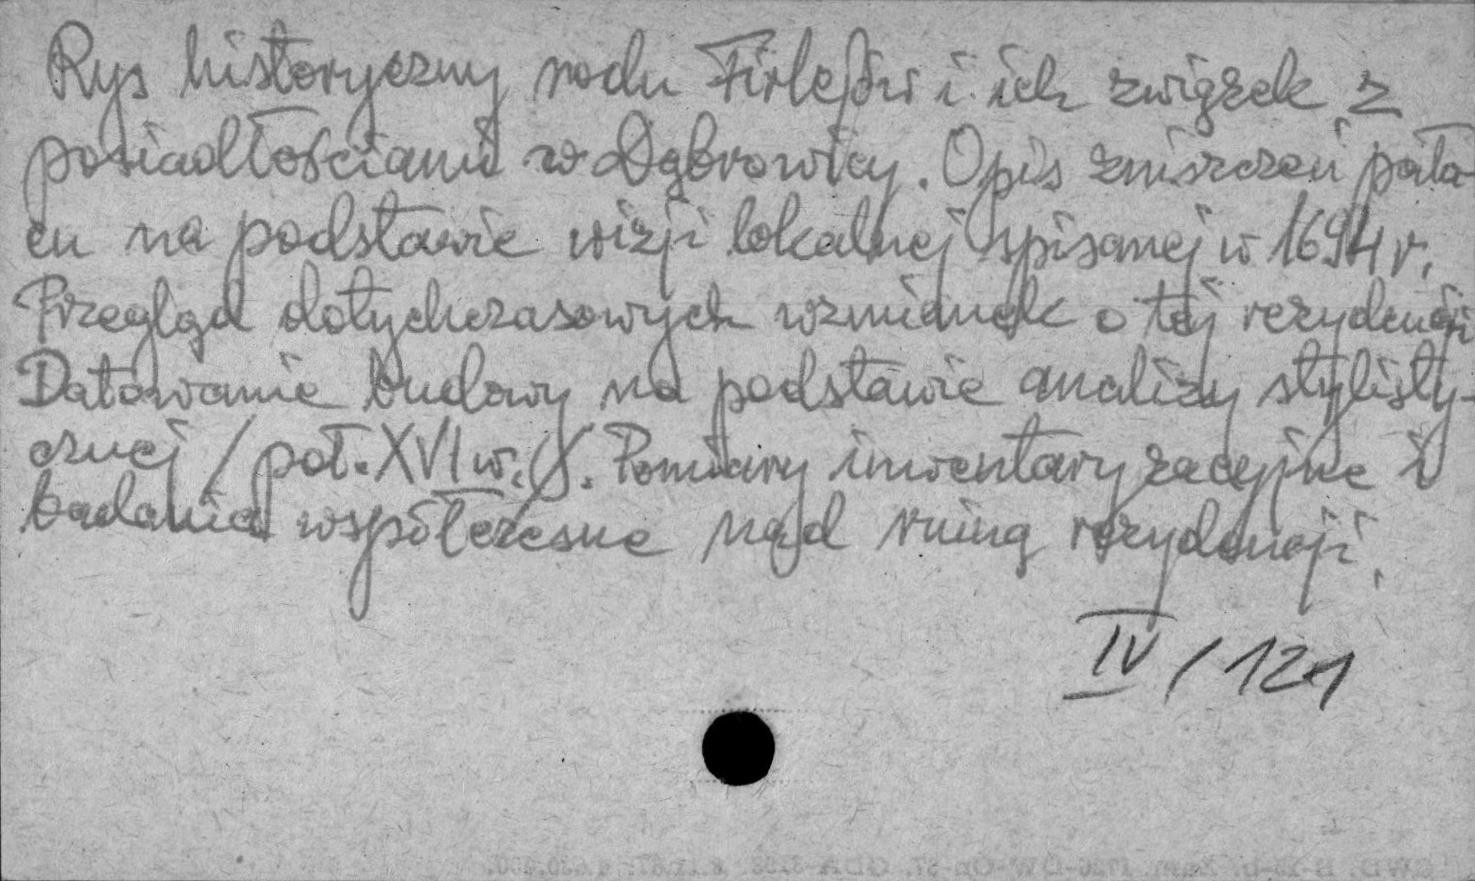 Rys historyczny rodu Firlejów i ich związek z
posiadłościami w Dąbrowicy. Opis zniszczeń pała-
cu na podstawie wizji lokalnej spisanej w 1694 r.
Przegląd dotychczasowych wzmianek o tej rezydencji
Datowanie budowy na podstawie analizy stylisty-
cznej /poł. XVI w./. Pomiary inwentaryzacyjne i
badania współczesne nad ruiną rezydencji.
IV / 121